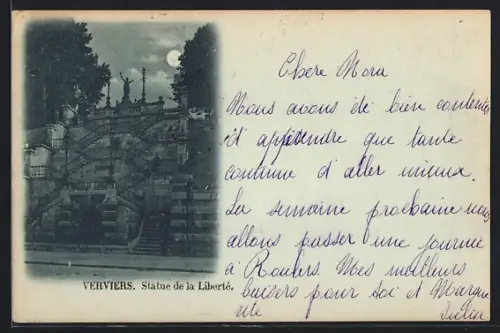 Chere Nora
Nous avons été bien contentes
d'apprendre que tante
continue d'aller mieux.
La semaine prochaine nous
allons passer une journée
à Roubers. Mes meilleurs
baisers pour toi et Margue
rite
Julia
VERVIERS. Statue de la Liberté.